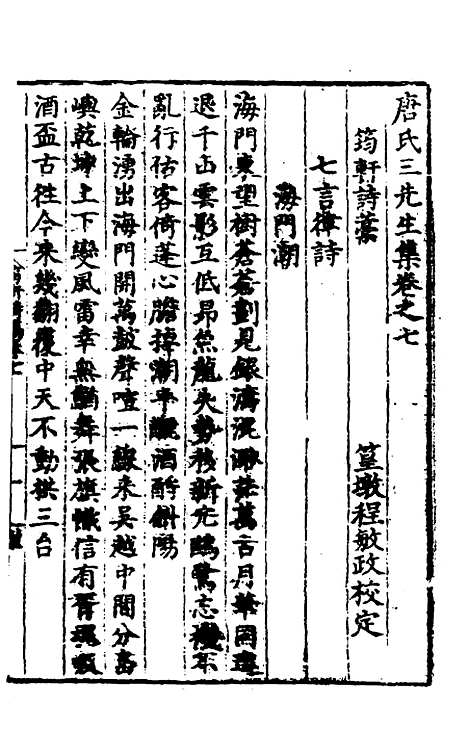 唐氏三先生集卷之七
筠軒詩藁　篁墩程敏政校定
七言律詩
海門潮
海門東望樹蒼蒼劃見銀濤混渺茫萬古月華因進
退千山雲影互低昂魚龍失勢移新穴鷗鷺忘機不
亂行估客倚蓬心膽掉潮平釃酒酹斜陽
金輪湧出海門開萬鼓聲喧一線來吳越中間分島
嶼乾坤上下變風雷幸無鬭舞張旗幟信有胥魂
酒盃古往今來幾翻覆中天不動拱三台